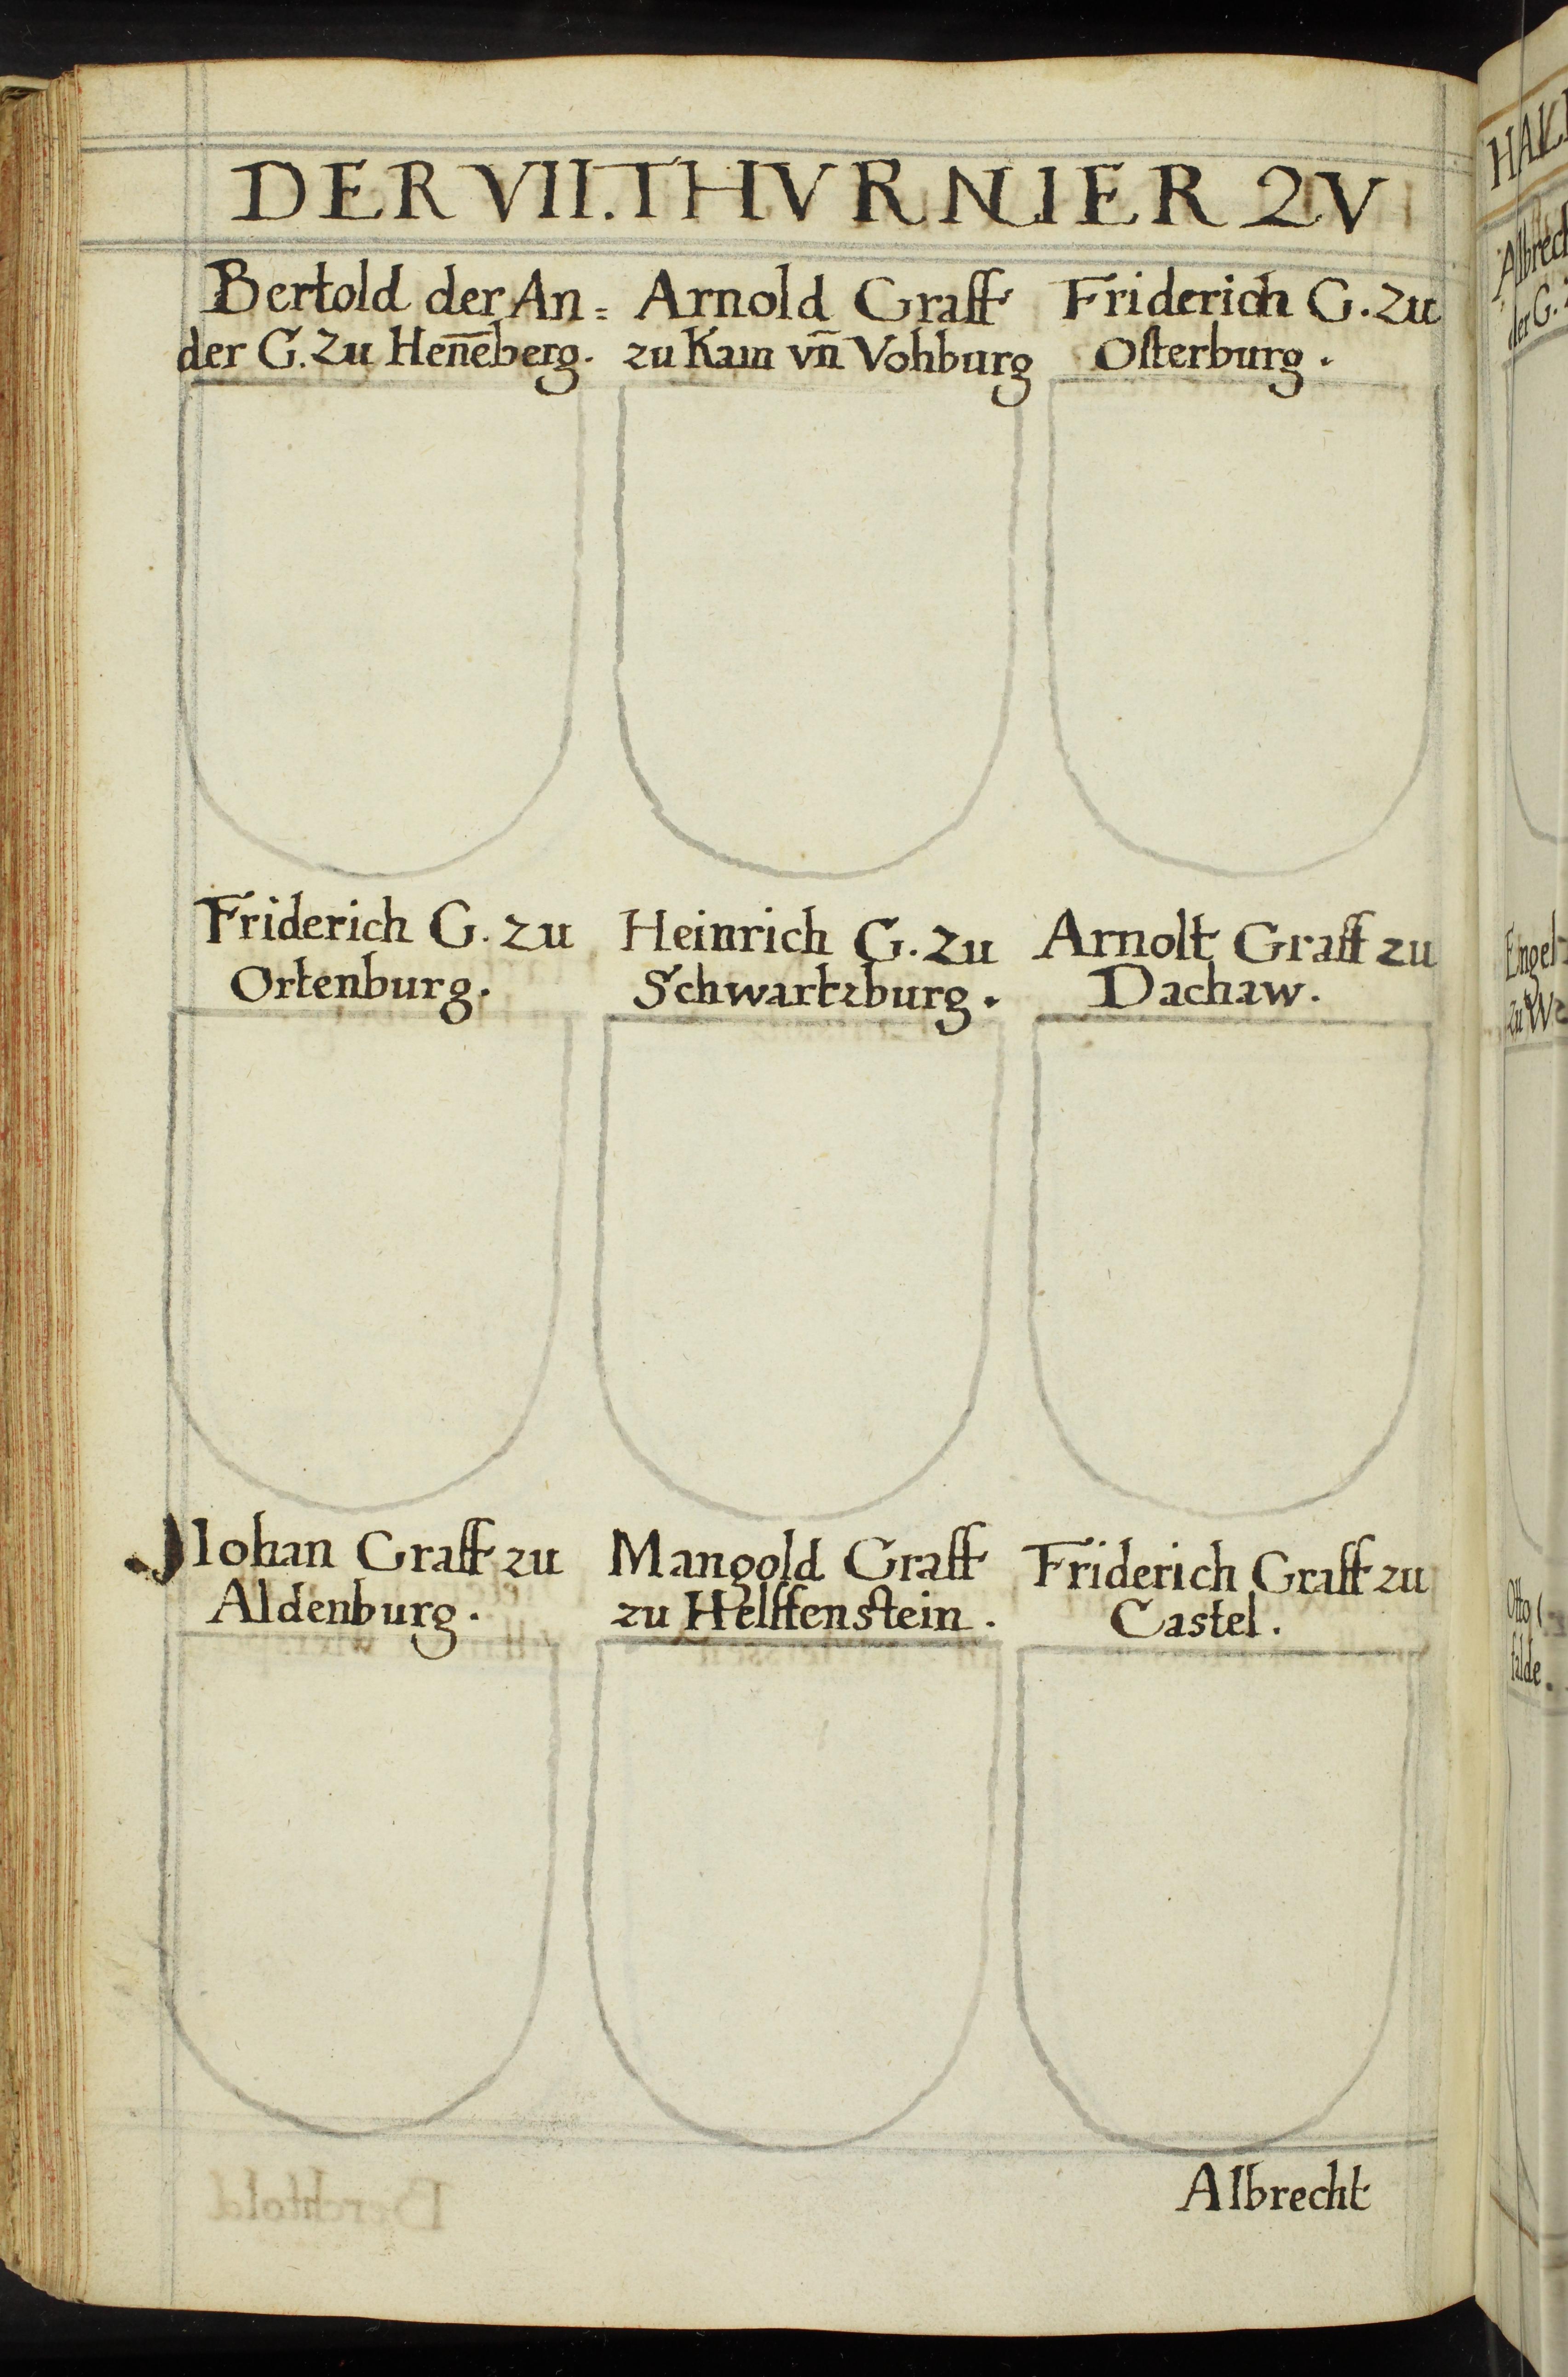 DER VII. THVRNIER ZV
Bertold der An=
der G. zu Hen̄eberg.
Arnold Graff
zu Kam vn̄ Vohburg
Friderich G. zu
Osterburg.
Friderich G. zu
Ortenburg.
Heinrich G. zu
Schwartzburg.
Arnolt Graff zu
Dachaw.
Iohan Graff zu
Aldenburg.
Mangold Graff
zu Helffenstein.
Friderich Graff zu
Castel.
Albrecht